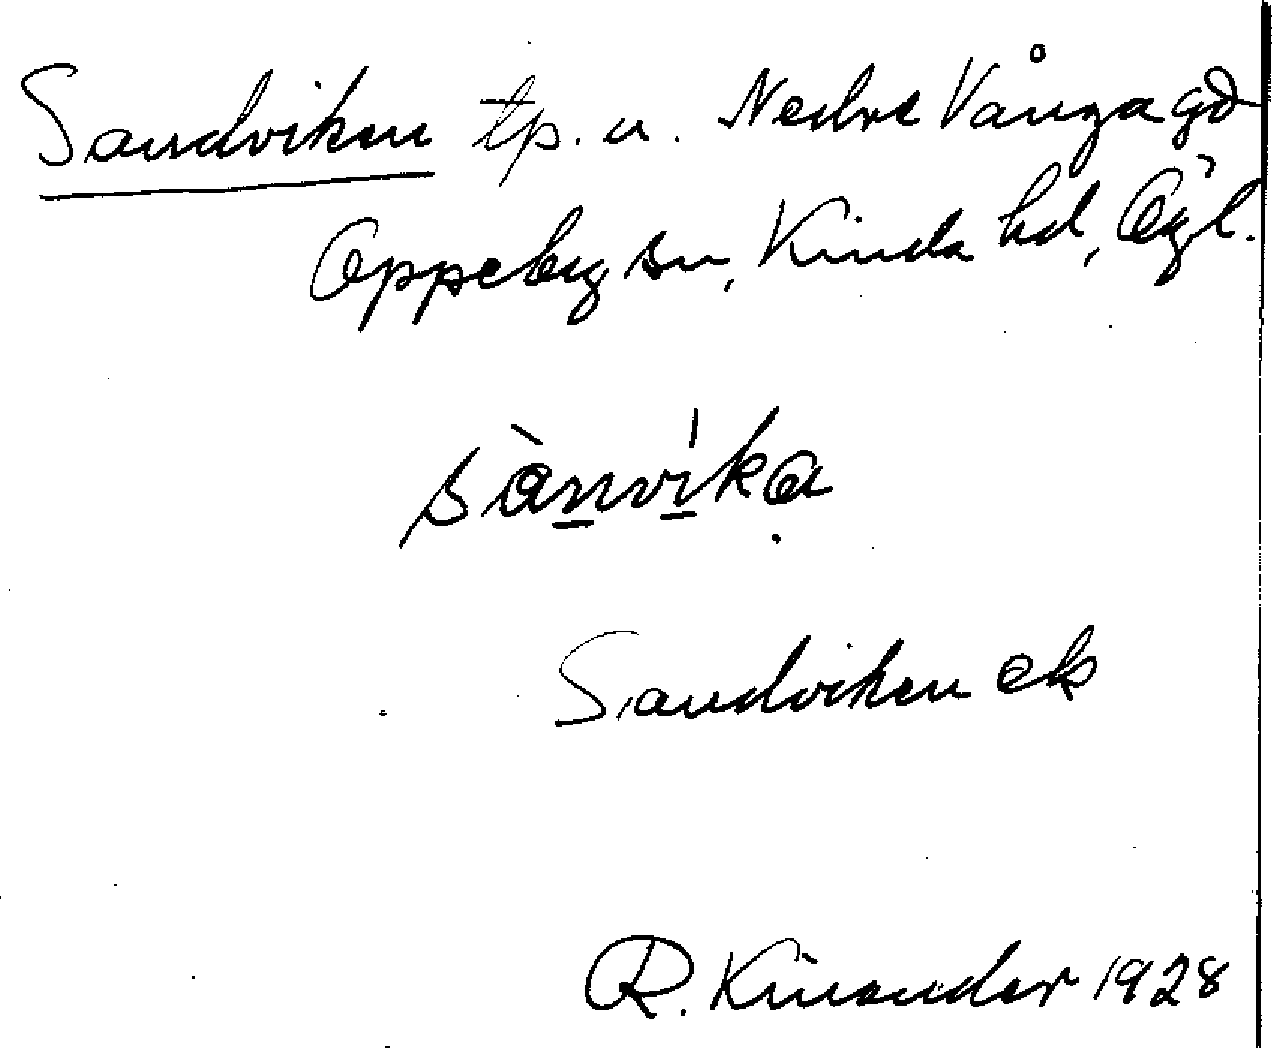 Sandviken tp. u. Nedre Vånga gd
Oppeby sn, Kinda hd, Ögl.
sànvika
Sandviken ek
R. Kinander 1928